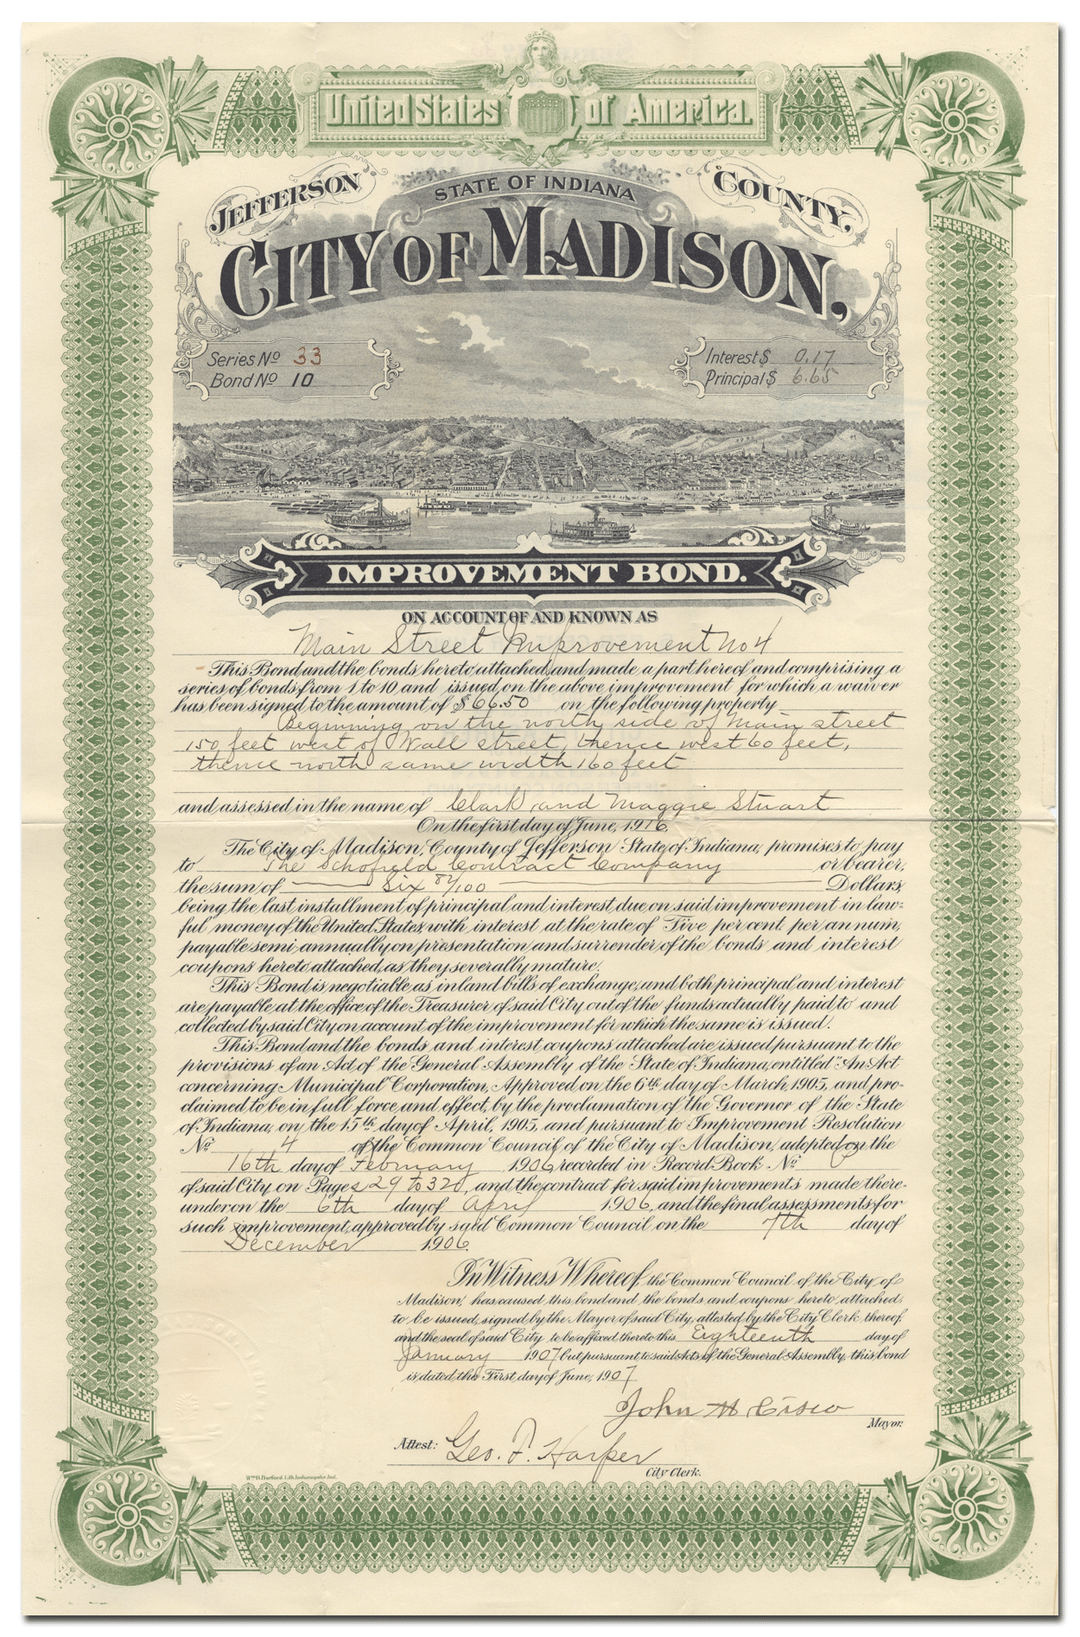 United States of America.
JEFFERSON STATE OF INDIANA COUNTY,
CITY OF MADISON,
Series No 33
Bond No 10
Interest $ 0.17
Principal $ 6.65
IMPROVEMENT BOND.
ON ACCOUNT OF AND KNOWN AS
Main Street Improvement No 4
This Bond and the bonds hereto attached, and made a part hereof and comprising a
series of bonds from 1 to 10 and issued on the above improvement for which a waiver
has been signed to the amount of $66.50 on the following property
Beginning on the north side of Main street
150 feet west of Wall street, thence west 60 feet,
thence north same width 160 feet
and assessed in the name of Clark and Maggie Stuart
On the first day of June, 1916.
The City of Madison, County of Jefferson State of Indiana, promises to pay
to The Schofield Contract Company or bearer,
the sum of Six 82/100 Dollars,
being the last installment of principal and interest due on said improvement in law-
ful money of the United States, with interest at the rate of Five per cent per annum,
payable semi-annually on presentation and surrender of the bonds and interest
coupons hereto attached, as they severally mature.
This Bond is negotiable as inland bills of exchange, and both principal and interest
are payable at the office of the Treasurer of said City out of the funds actually paid to and
collected by said City on account of the improvement for which the same is issued.
This Bond and the bonds and interest coupons attached are issued pursuant to the
provisions of an Act of the General Assembly of the State of Indiana, entitled "An Act
concerning Municipal Corporation, Approved on the 6th day of March, 1905, and pro-
claimed to be in full force and effect, by the proclamation of the Governor of the State
of Indiana, on the 15th day of April, 1905, and pursuant to Improvement Resolution
No 4 of the Common Council of the City of Madison, adopted on the
16th day of February 1906 recorded in Record Book No
of said City on Pages 29 to 320, and the contract for said improvements made there-
under on the 6th day of April 1906, and the final assessments for
such improvement, approved by said Common Council on the 7th day of
December 1906.
In Witness Whereof, the Common Council of the City of
Madison, has caused this bond and the bonds and coupons hereto attached
to be issued, signed by the Mayor of said City, attested by the City Clerk thereof
and the seal of said City to be affixed thereto this Eighteenth day of
January 1907 but pursuant to said Acts of the General Assembly, this bond
is dated this First day of June, 1907
John H Cisco
Mayor.
Attest: Geo. F. Harper
City Clerk.
Wm B. Burford, Lith Indianapolis Ind.